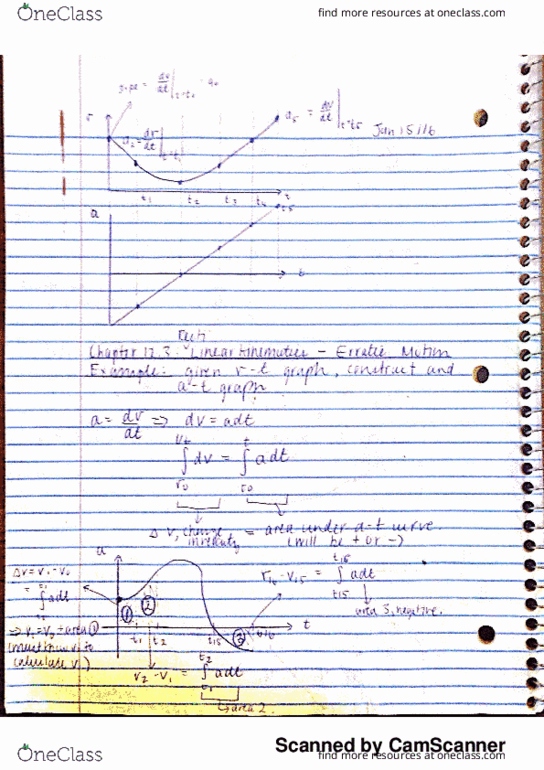 OneClass
find more resources at oneclass.com
slope = dv/dt | t=t₀ = a₀
v
a₁ = dv/dt | t=t₁
a₅ = dv/dt | t=t₅
Jan 15/16
t₁ t₂ t₃ t₄ t₅
t
a
t
Recti
Chapter 12.3: Linear Kinematics - Erratic Motion
Example: given v-t graph, construct and
a-t graph
a = dv/dt ⇒ dv = adt
∫dv = ∫adt
Δv, change in velocity = area under a-t curve
(will be + or -)
a
Δv = v₁-v₀
= ∫adt
⇒ v₁ = v₀ + area ①
(must know v₀ to
calculate v₁)
① ② ③
t₁ t₂ t₁₅ t₁₆ t
v₁₆ - v₁₅ = ∫adt
t₁₆
t₁₅
area 3, negative.
v₂-v₁ = ∫adt
t₂
t₁
↳ area 2
Scanned by CamScanner
OneClass
find more resources at oneclass.com